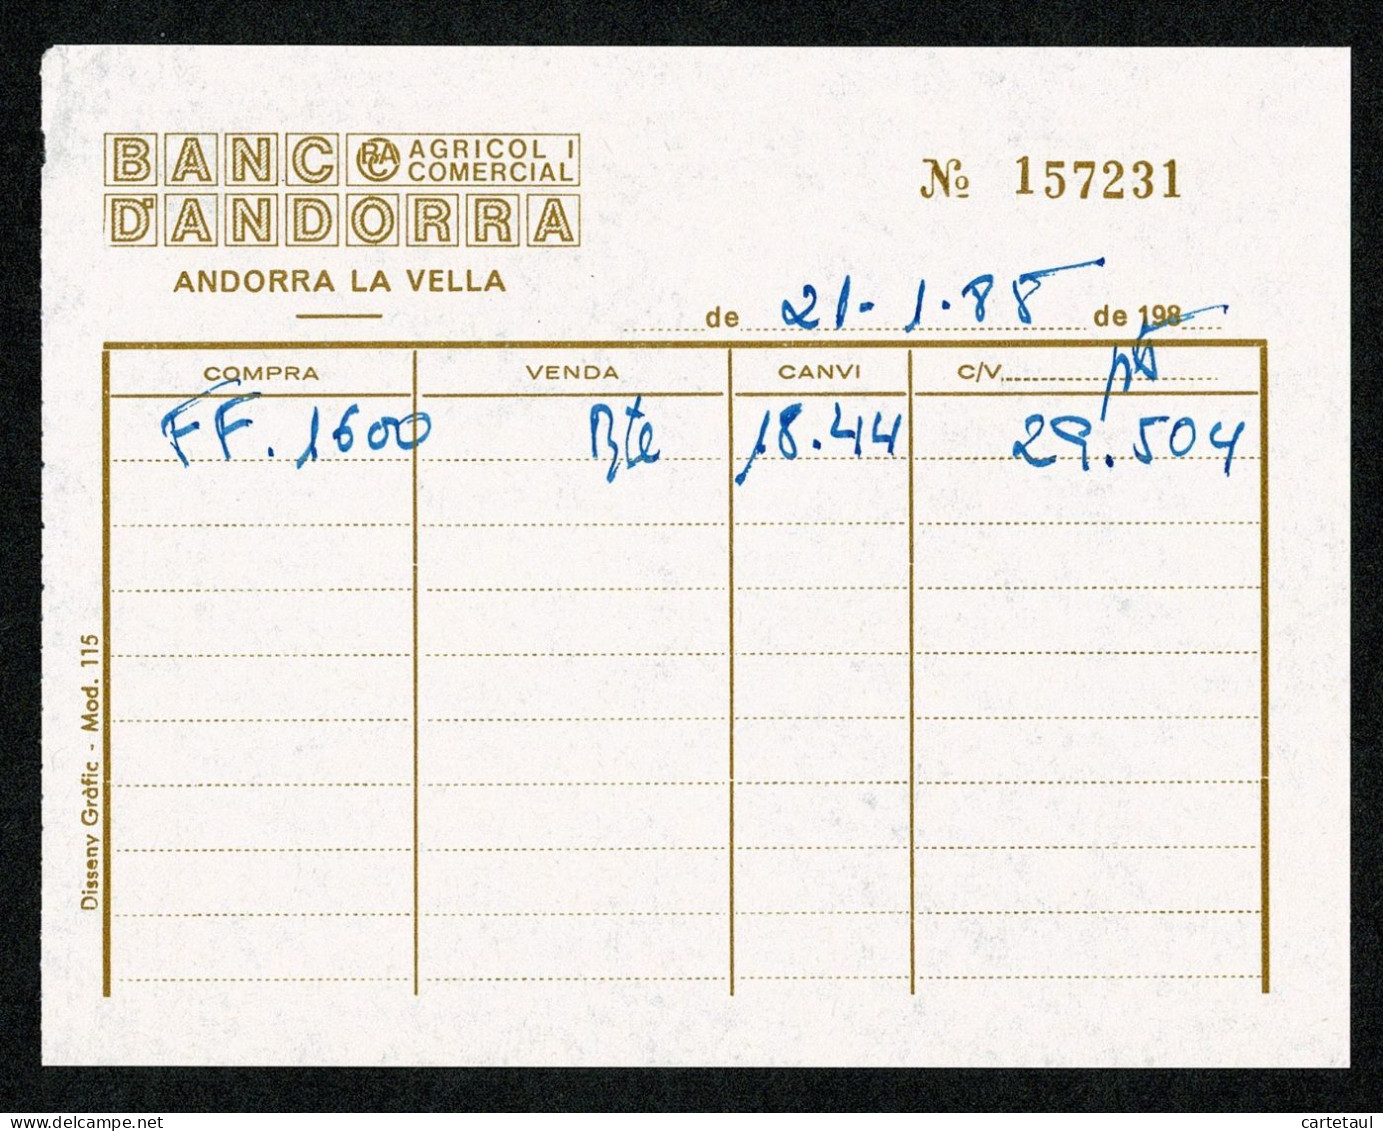 BANC BACA AGRICOL I
COMERCIAL
D'ANDORRA
ANDORRA LA VELLA
Nº 157231
de 21-1.85 de 198
COMPRA VENDA CANVI C/V
FF. 1600 Bte 18.44 29.504
Disseny Gràfic - Mod. 115
cartetaul